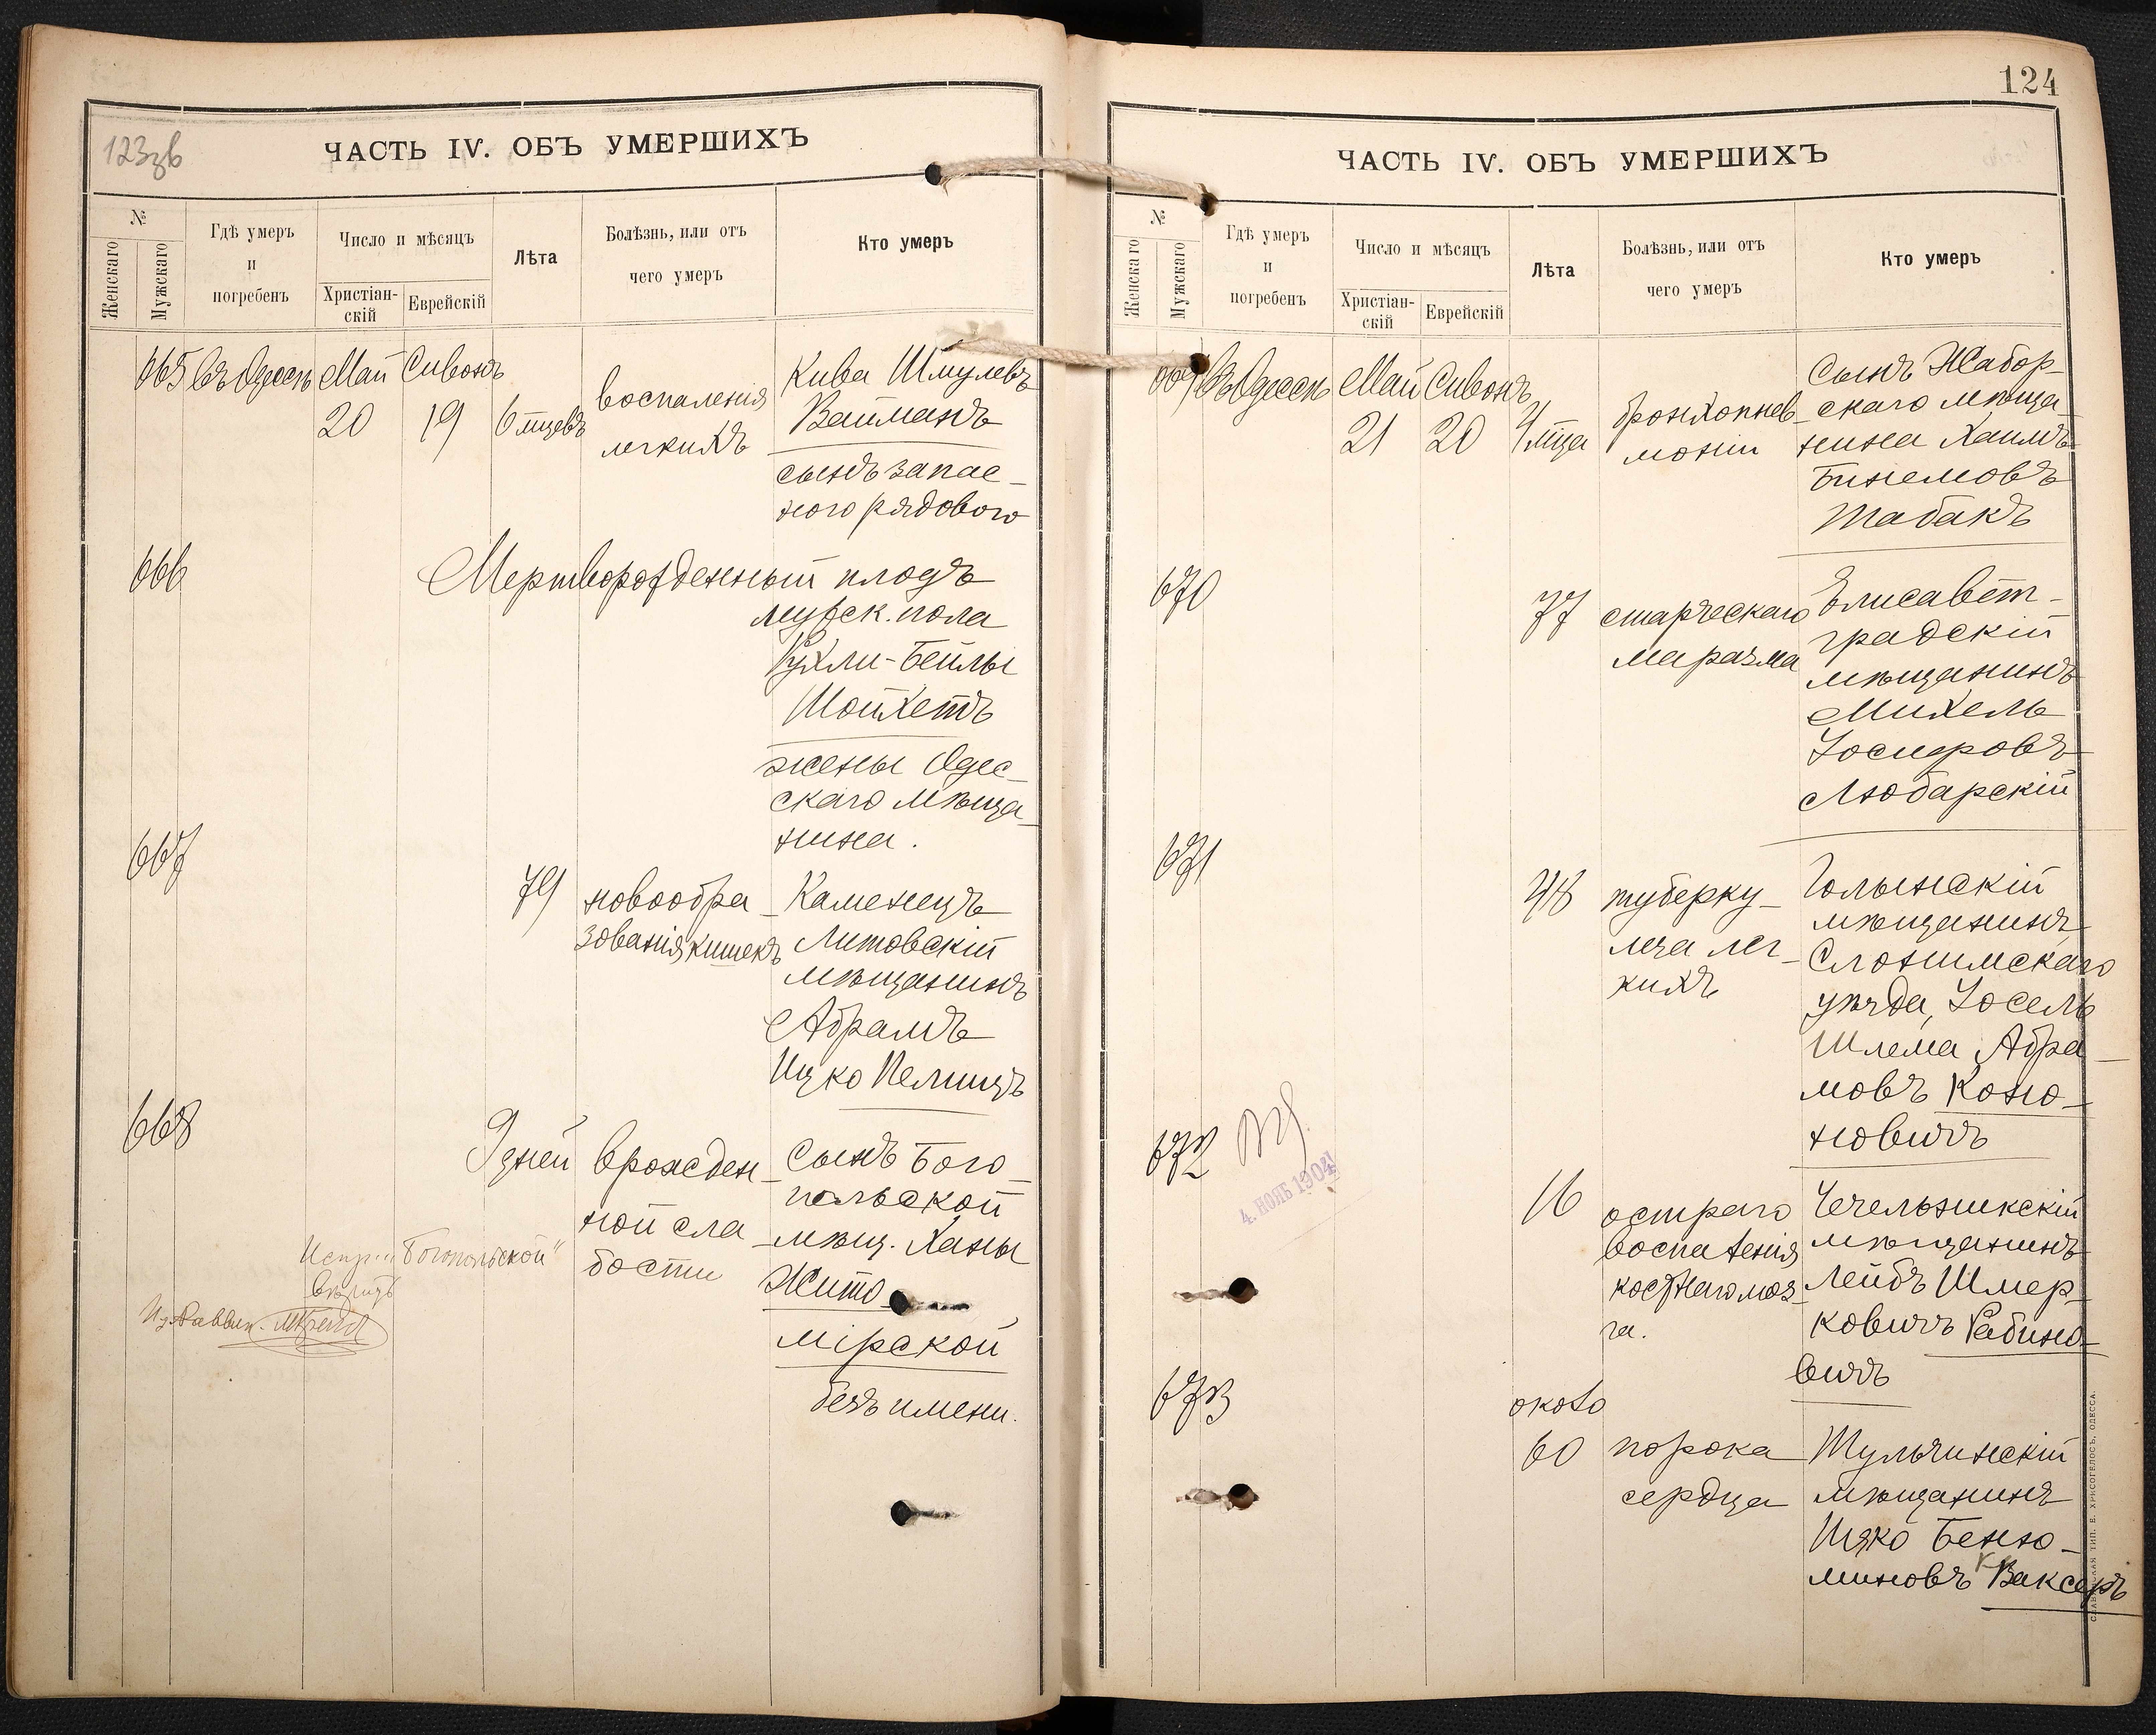 123зв
ЧАСТЬ IV. ОБЪ УМЕРШИХЪ
№
Женскаго
Мужскаго
Гдѣ умеръ
и
погребенъ
Число и мѣсяцъ
Христіан-
скій
Еврейскій
Лѣта
Болѣзнь, или отъ
чего умеръ
Кто умеръ
665 въ Одессѣ Май Сивонъ
20 19 6 мцевъ
воспаленія
легкихъ
Кива Шмулевъ
Вайманъ
сынъ запас-
ного рядового
666
Мертворожденный плодъ
мужск. пола
Рухли-Бейлы
Шойхетъ
жены Одес-
скаго мѣща-
нина.
667
79
новообра-
зованія кишекъ
Каменецъ
Литовскій
мѣщанинъ
Абрамъ
Ицко Пелницъ
668
9 дней
врожден-
ной сла-
бости
сынъ Бого-
польской
мѣщ. Ханы
Жито-
мірской
безъ имени.
"Богопольской"
вѣрить
Раввин.
124
ЧАСТЬ IV. ОБЪ УМЕРШИХЪ
№
Женскаго
Мужскаго
Гдѣ умеръ
и
погребенъ
Число и мѣсяцъ
Христіан-
скій
Еврейскій
Лѣта
Болѣзнь, или отъ
чего умеръ
Кто умеръ
669 въ Одессѣ Май Сивонъ
21 20 4 мца
бронхопнев-
моніи
сынъ Жабор-
скаго мѣща-
нина Хаимъ
Бинемовъ
Табакъ
670
77
старческаго
маразма
Елисавет-
градскій
мѣщанинъ
Михель
Іосифовъ
Любарскій
671
48
туберку-
леза лег-
кихъ
Голынскій
мѣщанинъ,
Слонимскаго
уѣзда, Іосель
Шлема Абра-
мовъ Коно-
новичъ
672
4. НОЯБ 1904
16
остраго
воспаленія
костнаго моз-
га.
Чечельникскій
мѣщанинъ
Лейбъ Шмер-
ковичъ Рабино-
вичъ
673
около
60
порока
сердца
Тульчинскій
мѣщанинъ
Ицко Беню-
миновъ Ваксеръ
СЛАВЯНСКАЯ ТИП. Е. ХРИСОГЕЛОСЪ, ОДЕССА.